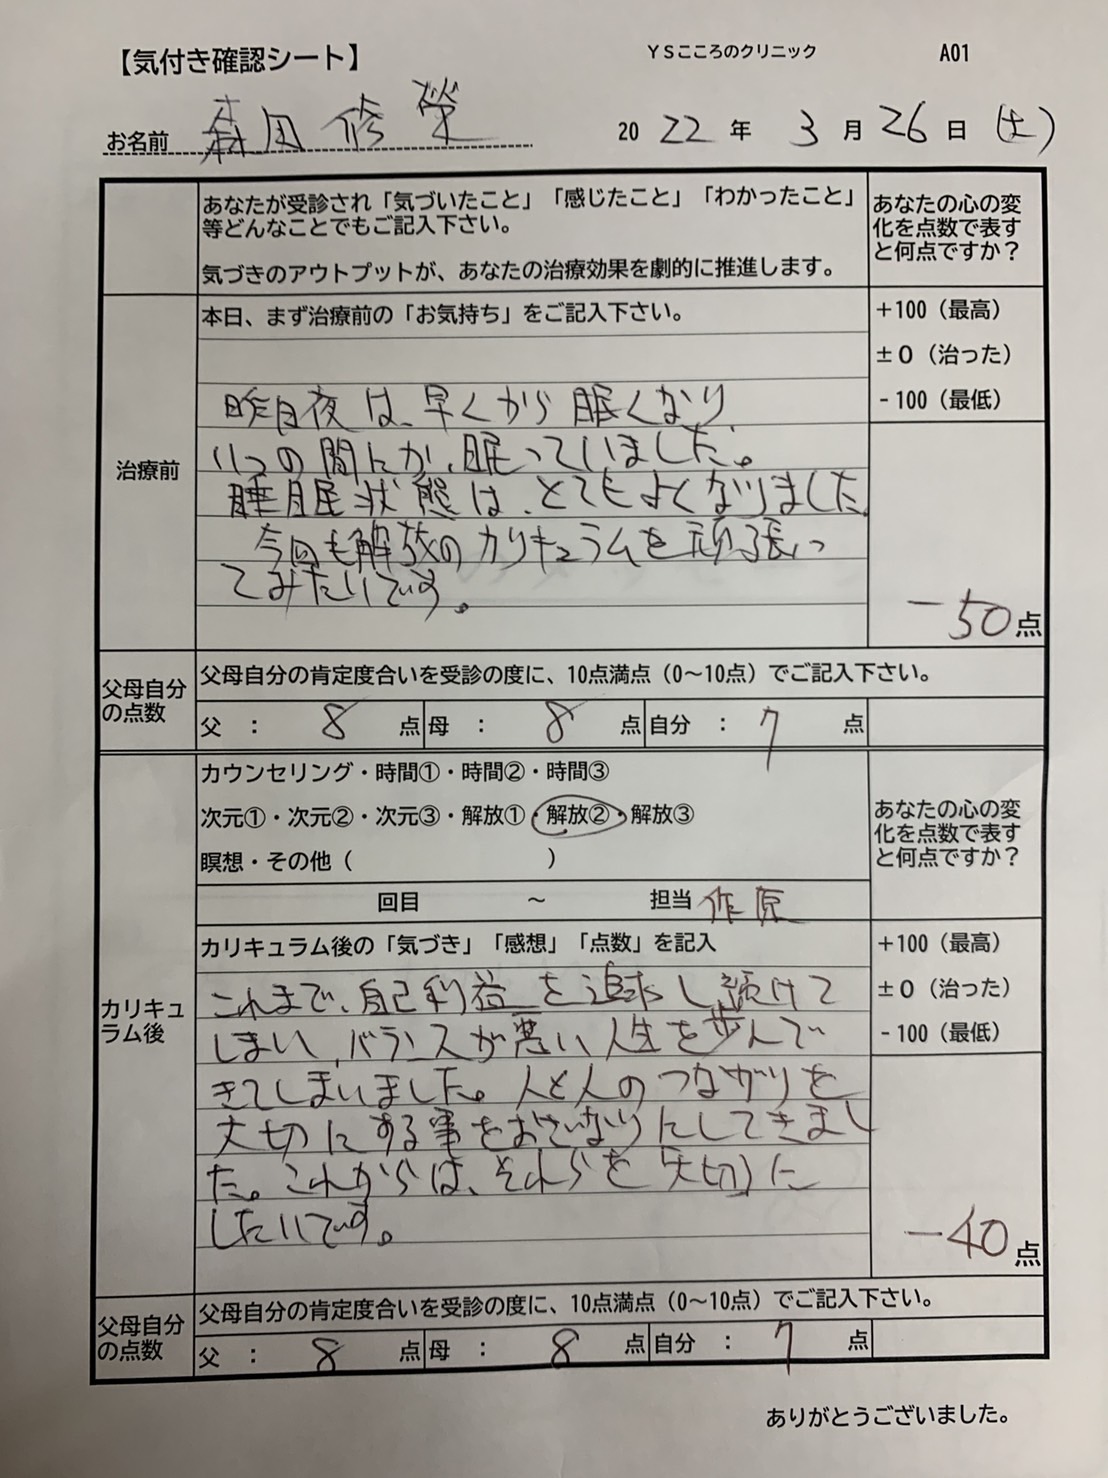 【気付き確認シート】 YSこころのクリニック A01
お名前 森田 修 榮 2022年 3月26日(土)
あなたが受診され「気づいたこと」「感じたこと」「わかったこと」
等どんなことでもご記入下さい。
気づきのアウトプットが、あなたの治療効果を劇的に推進します。
あなたの心の変
化を点数で表す
と何点ですか?
治療前
本日、まず治療前の「お気持ち」をご記入下さい。
昨日夜は、早くから眠くなり
いつの間にか、眠っていました。
睡眠状態は、とてもよくなりました。
今回も解放のカリキュラムを頑張っ
てみたいです。
+100(最高)
±0(治った)
-100(最低)
-50点
父母自分
の点数
父母自分の肯定度合いを受診の度に、10点満点(0~10点)でご記入下さい。
父 : 8 点 母 : 8 点 自分 : 7 点
カリキュ
ラム後
カウンセリング・時間①・時間②・時間③
次元①・次元②・次元③・解放①・解放②・解放③
瞑想・その他( )
回目 ~ 担当 作原
あなたの心の変
化を点数で表す
と何点ですか?
カリキュラム後の「気づき」「感想」「点数」を記入
これまで、自己利益を追求し続けて
しまい、バランスが悪い人生を歩んで
きてしまいました。人と人のつながりを
大切にする事をおざなりにしてきまし
た。これからは、それらを大切に
したいです。
+100(最高)
±0(治った)
-100(最低)
-40点
父母自分
の点数
父母自分の肯定度合いを受診の度に、10点満点(0~10点)でご記入下さい。
父 : 8 点 母 : 8 点 自分 : 7 点
ありがとうございました。